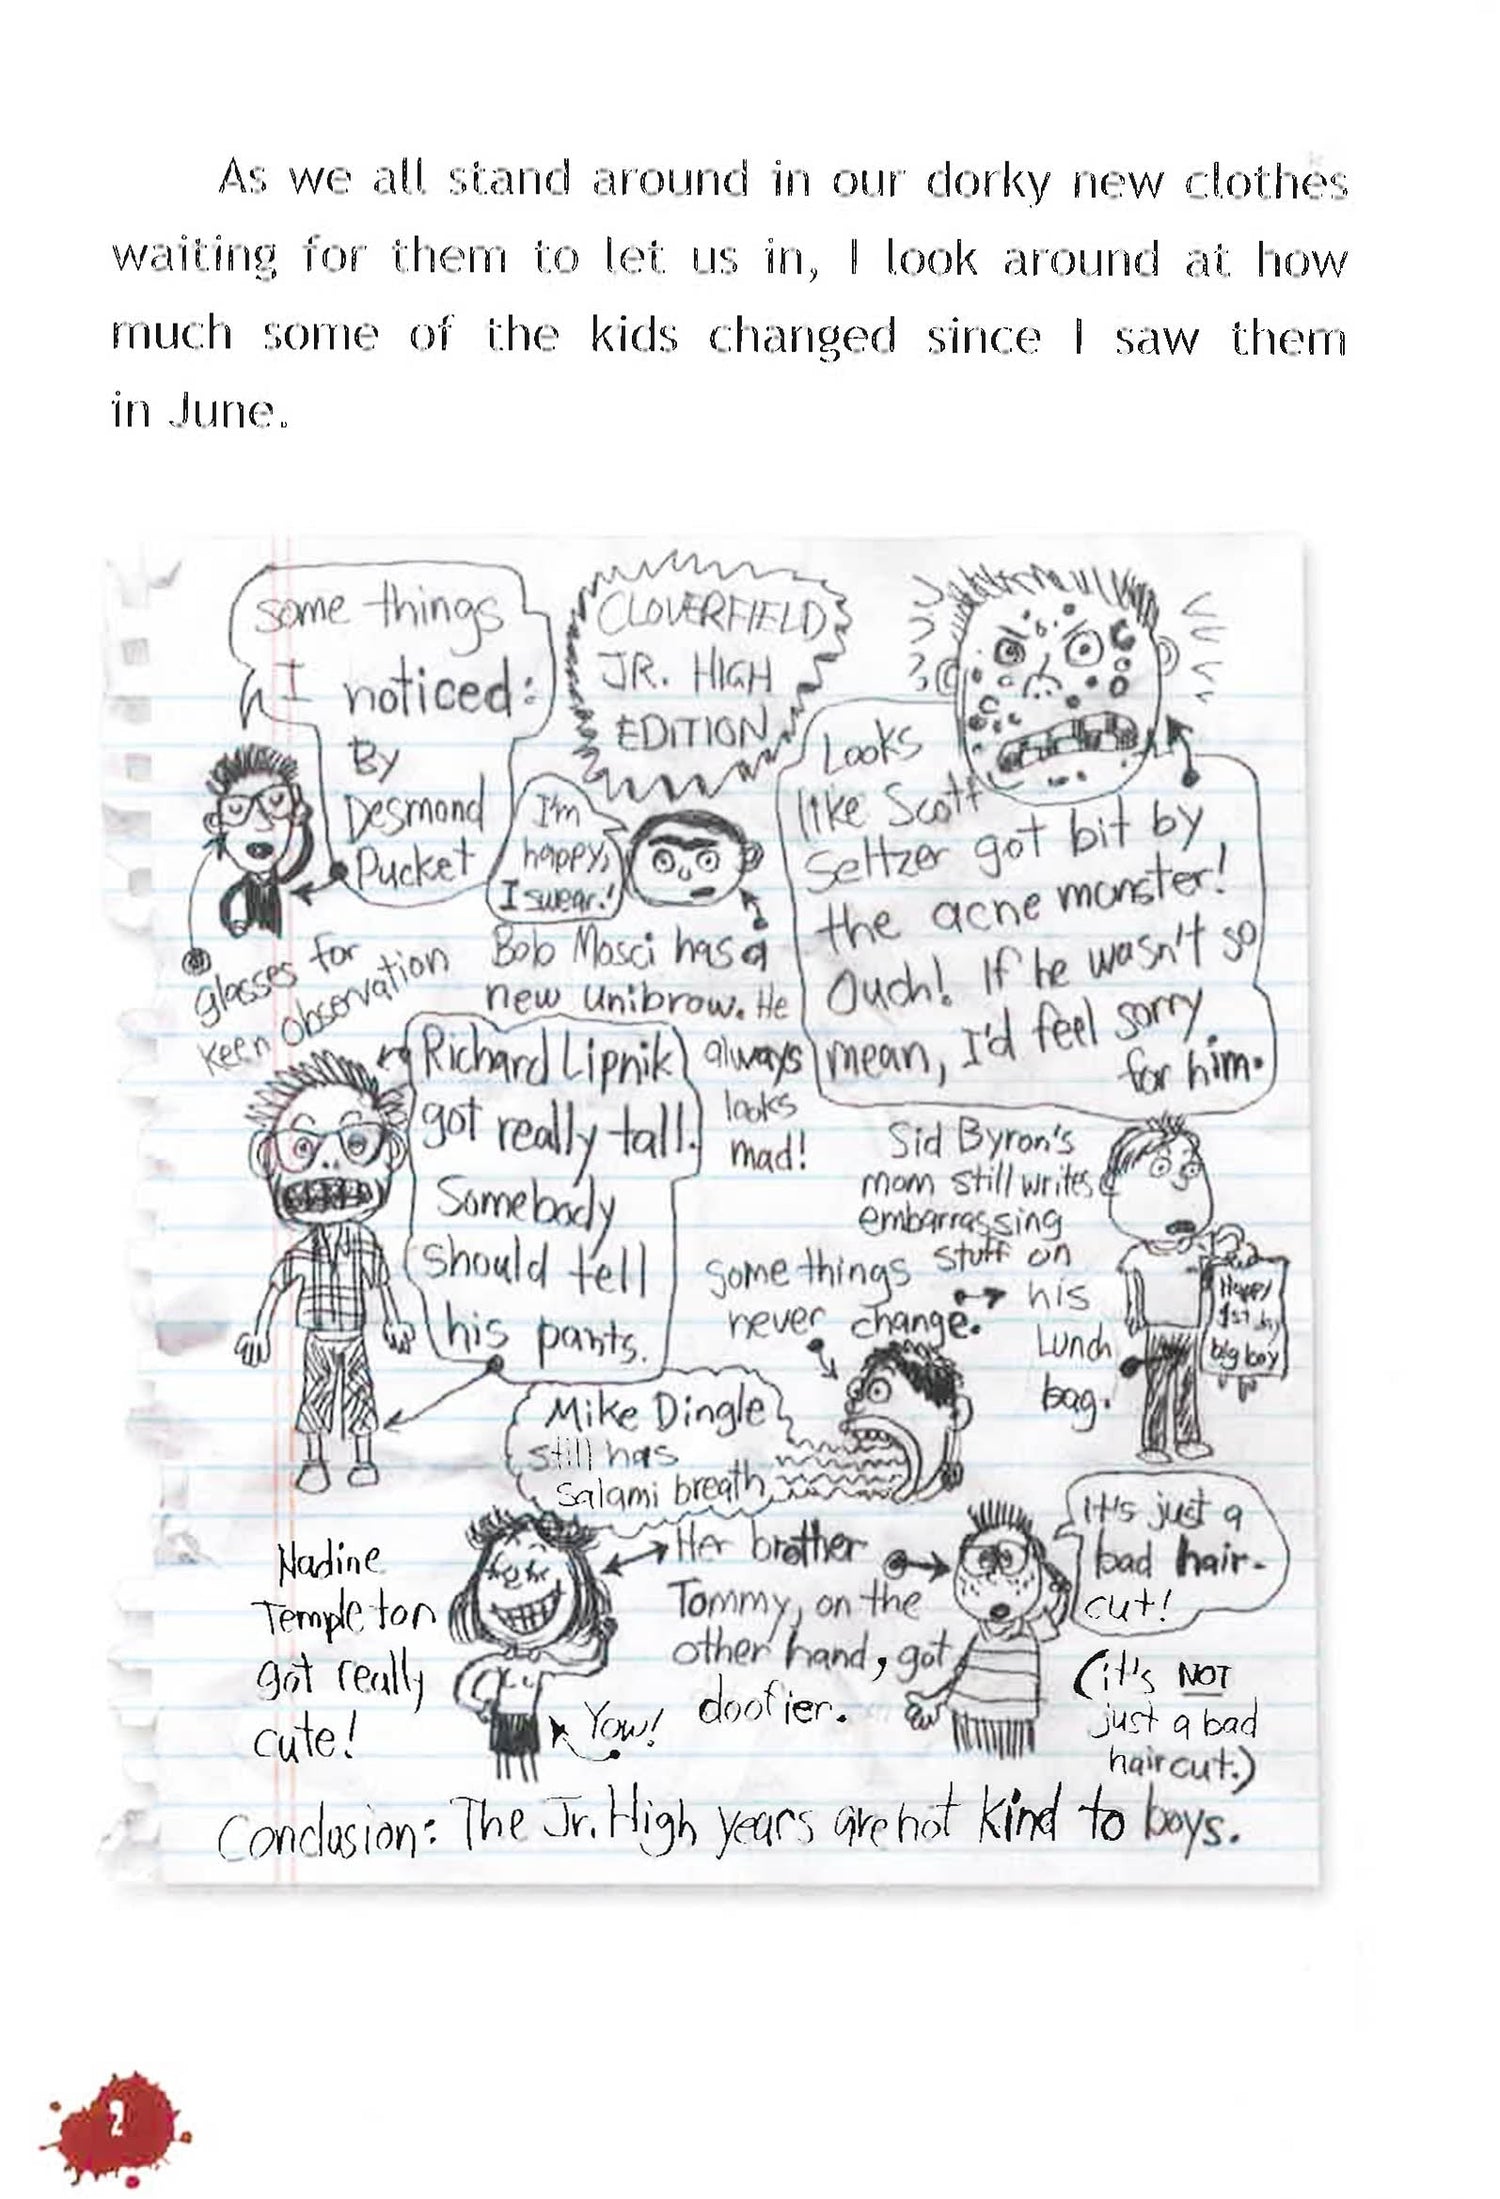 As we all stand around in our dorky new clothes
waiting for them to let us in, I look around at how
much some of the kids changed since I saw them
in June.
Some things
I noticed:
By
Desmond
Pucket
CLOVERFIELD
JR. HIGH
EDITION
glasses for
keen observation
I'm
happy,
I swear!
Bob Mosci has a
new unibrow. He
always
looks
mad!
Looks
like Scott
Seltzer got bit by
the acne monster!
Ouch! If he wasn't so
mean, I'd feel sorry
for him.
Richard Lipnik
got really tall.
Somebody
should tell
his pants.
Sid Byron's
mom still writes
embarrassing
stuff on
his
Lunch
bag.
Happy
1st day
big boy
some things
never change.
Mike Dingle
still has
Salami breath
Nadine
Templeton
got really
cute!
Yow!
Her brother
Tommy, on the
other hand, got
doofier.
It's just a
bad hair-
cut!
(it's NOT
just a bad
haircut.)
Conclusion: The Jr. High years are not kind to boys.
2